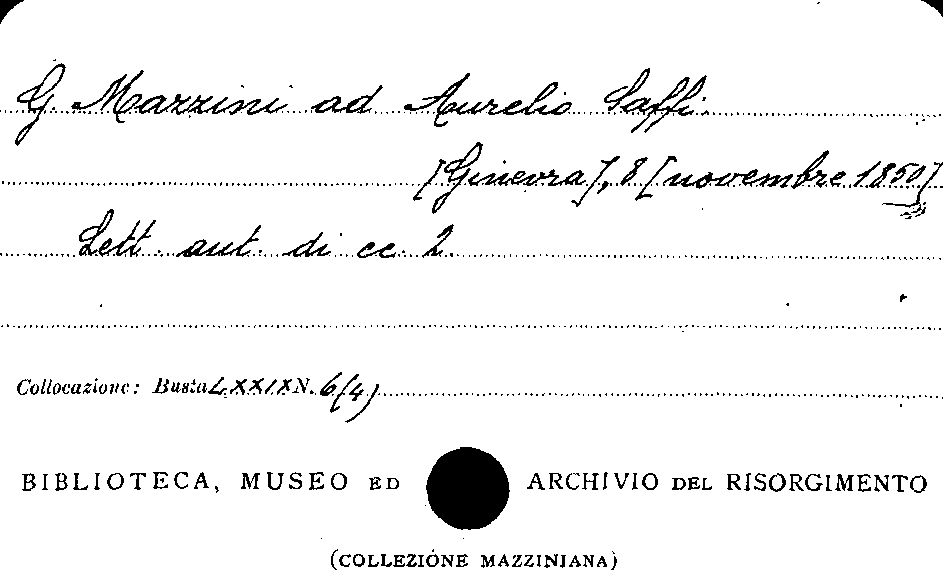 G. Mazzini ad Aurelio Saffi.
[Ginevra], 8 [novembre 1850]
Lett. aut. di cc. 2.
Collocazione: Busta LXXIX N. 6(4)
BIBLIOTECA, MUSEO ED ARCHIVIO DEL RISORGIMENTO
(COLLEZIONE MAZZINIANA)